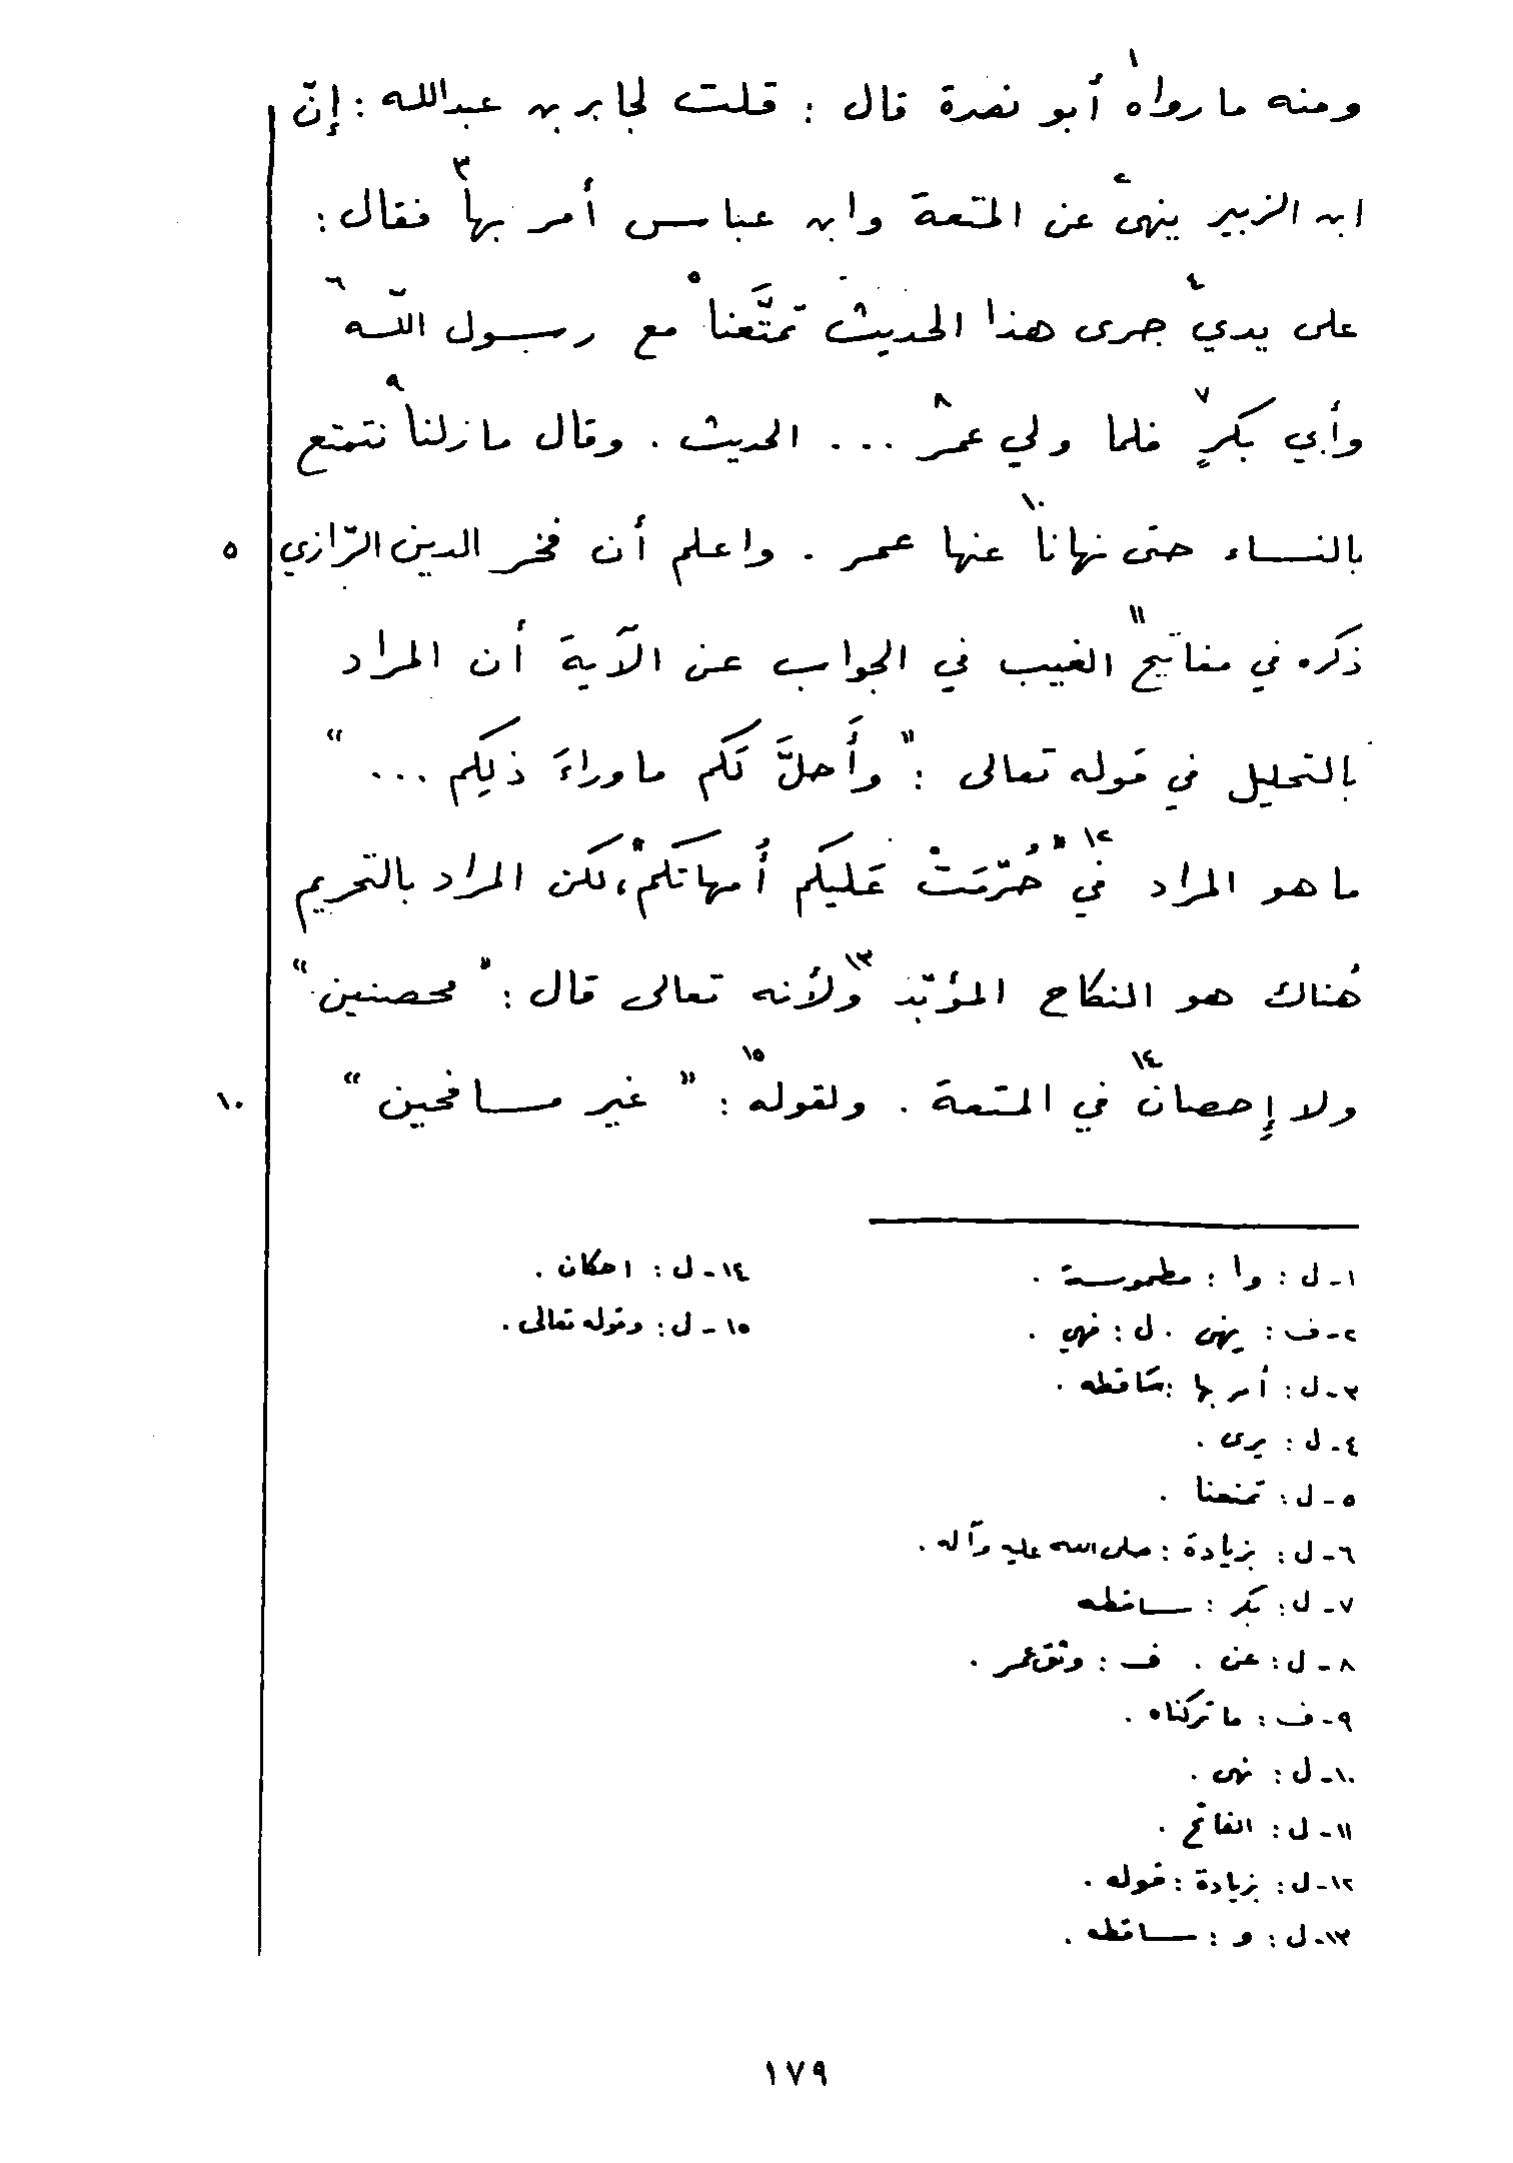 ومنه ما رواه١ أبو نصرة قال : قلت لجابر بن عبدالله : إنّ
ابن الزبير ينهى٢ عن المتعة وابن عباس أمر بها٣ فقال :
على يدي٤ جرى هذا الحديث تمتَّعنا٥ مع رسول اللّه٦
وأبي بكرٍ٧ فلما ولي عمر٨ ... الحديث . وقال ما زلنا٩ نتمتع
بالنساء حتى نهانا١٠ عنها عمر . واعلم أن فخر الدين الرّازي ٥
ذكره في مفاتيح١١ الغيب في الجواب عن الآية أن المراد
بالتحليل في قوله تعالى : " وأَحلَّ لَكم ما وراءَ ذلِكم ... "
ما هو المراد في١٢ " حُرّمَتْ عَليكم أُمهاتكم " ، لكن المراد بالتحريم
هُناك هو النكاح المؤبّد ولأنه١٣ تعالى قال : " محصنين "
ولا إِحصان١٤ في المتعة . ولقوله١٥ : " غير مسافحين " ١٠
١ - ل : وا : مطموسة .
٢ - ف : ينهى . ل : نهي .
٣ - ل : أمر بها : ساقطه .
٤ - ل : يرى .
٥ - ل : تمنعنا .
٦ - ل : بزيادة : صلى الله عليه وآله .
٧ - ل : بكر : ساقطه
٨ - ل : عن . ف : وثق عمر .
٩ - ف : ما تركناه .
١٠ - ل : نهى .
١١ - ل : الفاتح .
١٢ - ل : بزيادة : قوله .
١٣ - ل : و : ساقطه .
١٤ - ل : احكان .
١٥ - ل : وقوله تعالى .
١٧٩